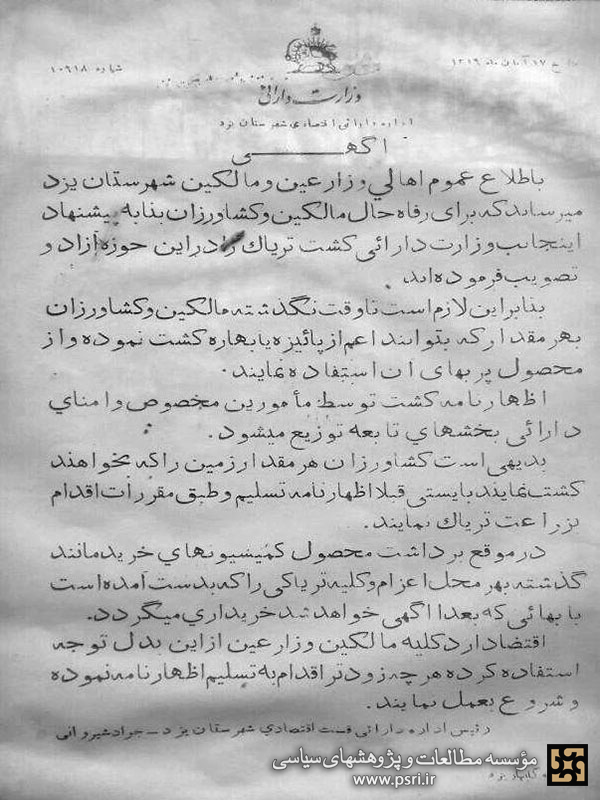 تاریخ ۱۷ آبان ماه ۱۳۱۹
شماره ۱۰۹۱۸
وزارت دارائی
اداره دارائی اقتصادی شهرستان یزد
اگهـــی
باطلاع عموم اهالي وزارعین و مالکین شهرستان یزد
میرساند که برای رفاه حال مالکین و کشاورزان بنا به پیشنهاد
اینجانب وزارت دارائی کشت تریاك را در این حوزه آزاد و
تصویب فرموده اند.
بنابراین لازم است تا وقت نگذشته مالکین و کشاورزان
بهر مقدار که بتوانند اعم از پائیزه یا بهاره کشت نموده و از
محصول پر بهای ان استفاده نمایند.
اظهارنامه کشت توسط مأمورین مخصوص و امنای
دارائی بخشهاي تابعه توزیع میشود.
بدیهی است کشاورزان هر مقدار زمین را که بخواهند
کشت نمایند بایستی قبلا اظهارنامه تسلیم و طبق مقررات اقدام
بزراعت تریاك نمایند.
در موقع برداشت محصول کمیسیونهاي خرید مانند
گذشته بهر محل اعزام و کلیه تریاکی را که بدست آمده است
با بهائی که بعدا اگهی خواهد شد خریداري میگردد.
اقتضا دارد کلیه مالکین وزارعین از این بذل توجه
استفاده کرده هر چه زودتر اقدام به تسلیم اظهارنامه نموده
و شروع بعمل نمایند.
رئیس اداره دارائی قسمت اقتصادي شهرستان یزد - جواد شیروانی
گلبهار یزد
مؤسسه مطالعات و پژوهشهای سیاسی
www.psri.ir